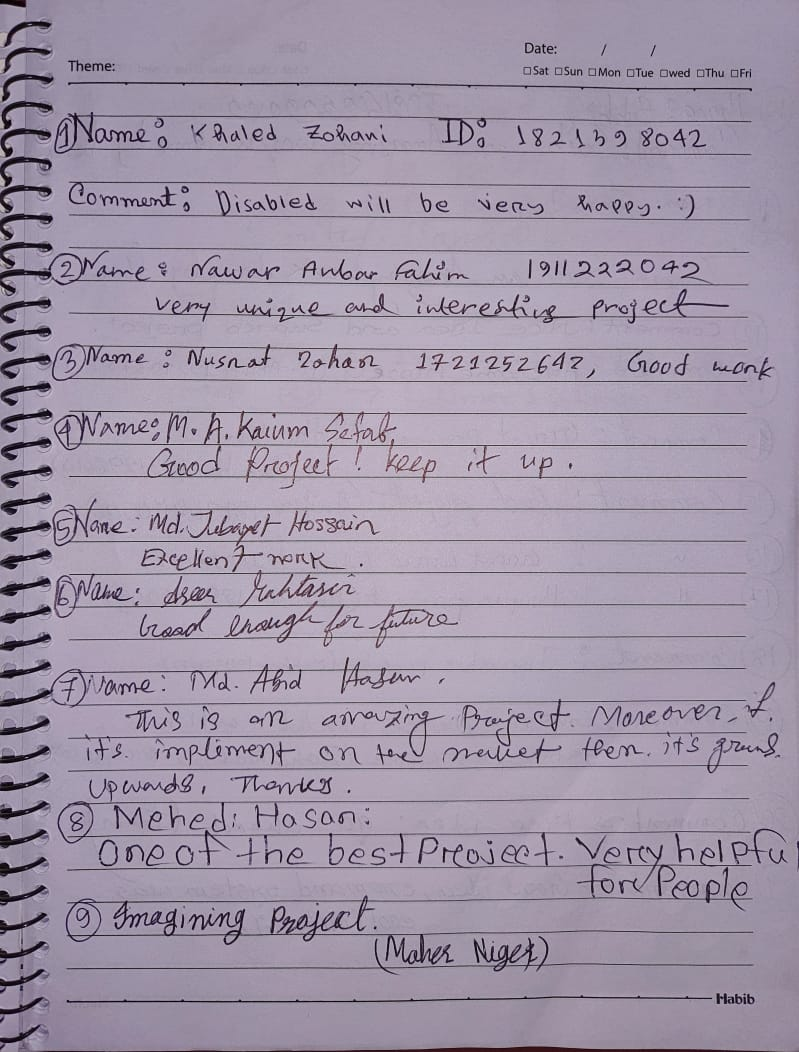 Date: / /
Theme:
□Sat □Sun □Mon □Tue □wed □Thu □Fri
① Name: Khaled Zohani ID: 1821398042
Comment: Disabled will be very happy. :)
② Name: Nawar Anbar Fahim 1911222042
very unique and interesting project
③ Name: Nusrat Zahan 1721252642, Good work
④ Name: M. A. Kaium Sefat,
Good Project! keep it up.
⑤ Name: Md. Jubayer Hossain
Excellent work.
⑥ Name:
Good enough for future
⑦ Name: Md. Abid Hasan.
This is an amazing Project. Moreover, if
it's impliment on the market then it's
Upwards, Thanks.
⑧ Mehedi Hasan:
One of the best Project. Very helpful
for People
⑨ Imagining Project.
(Maher Niger)
Habib